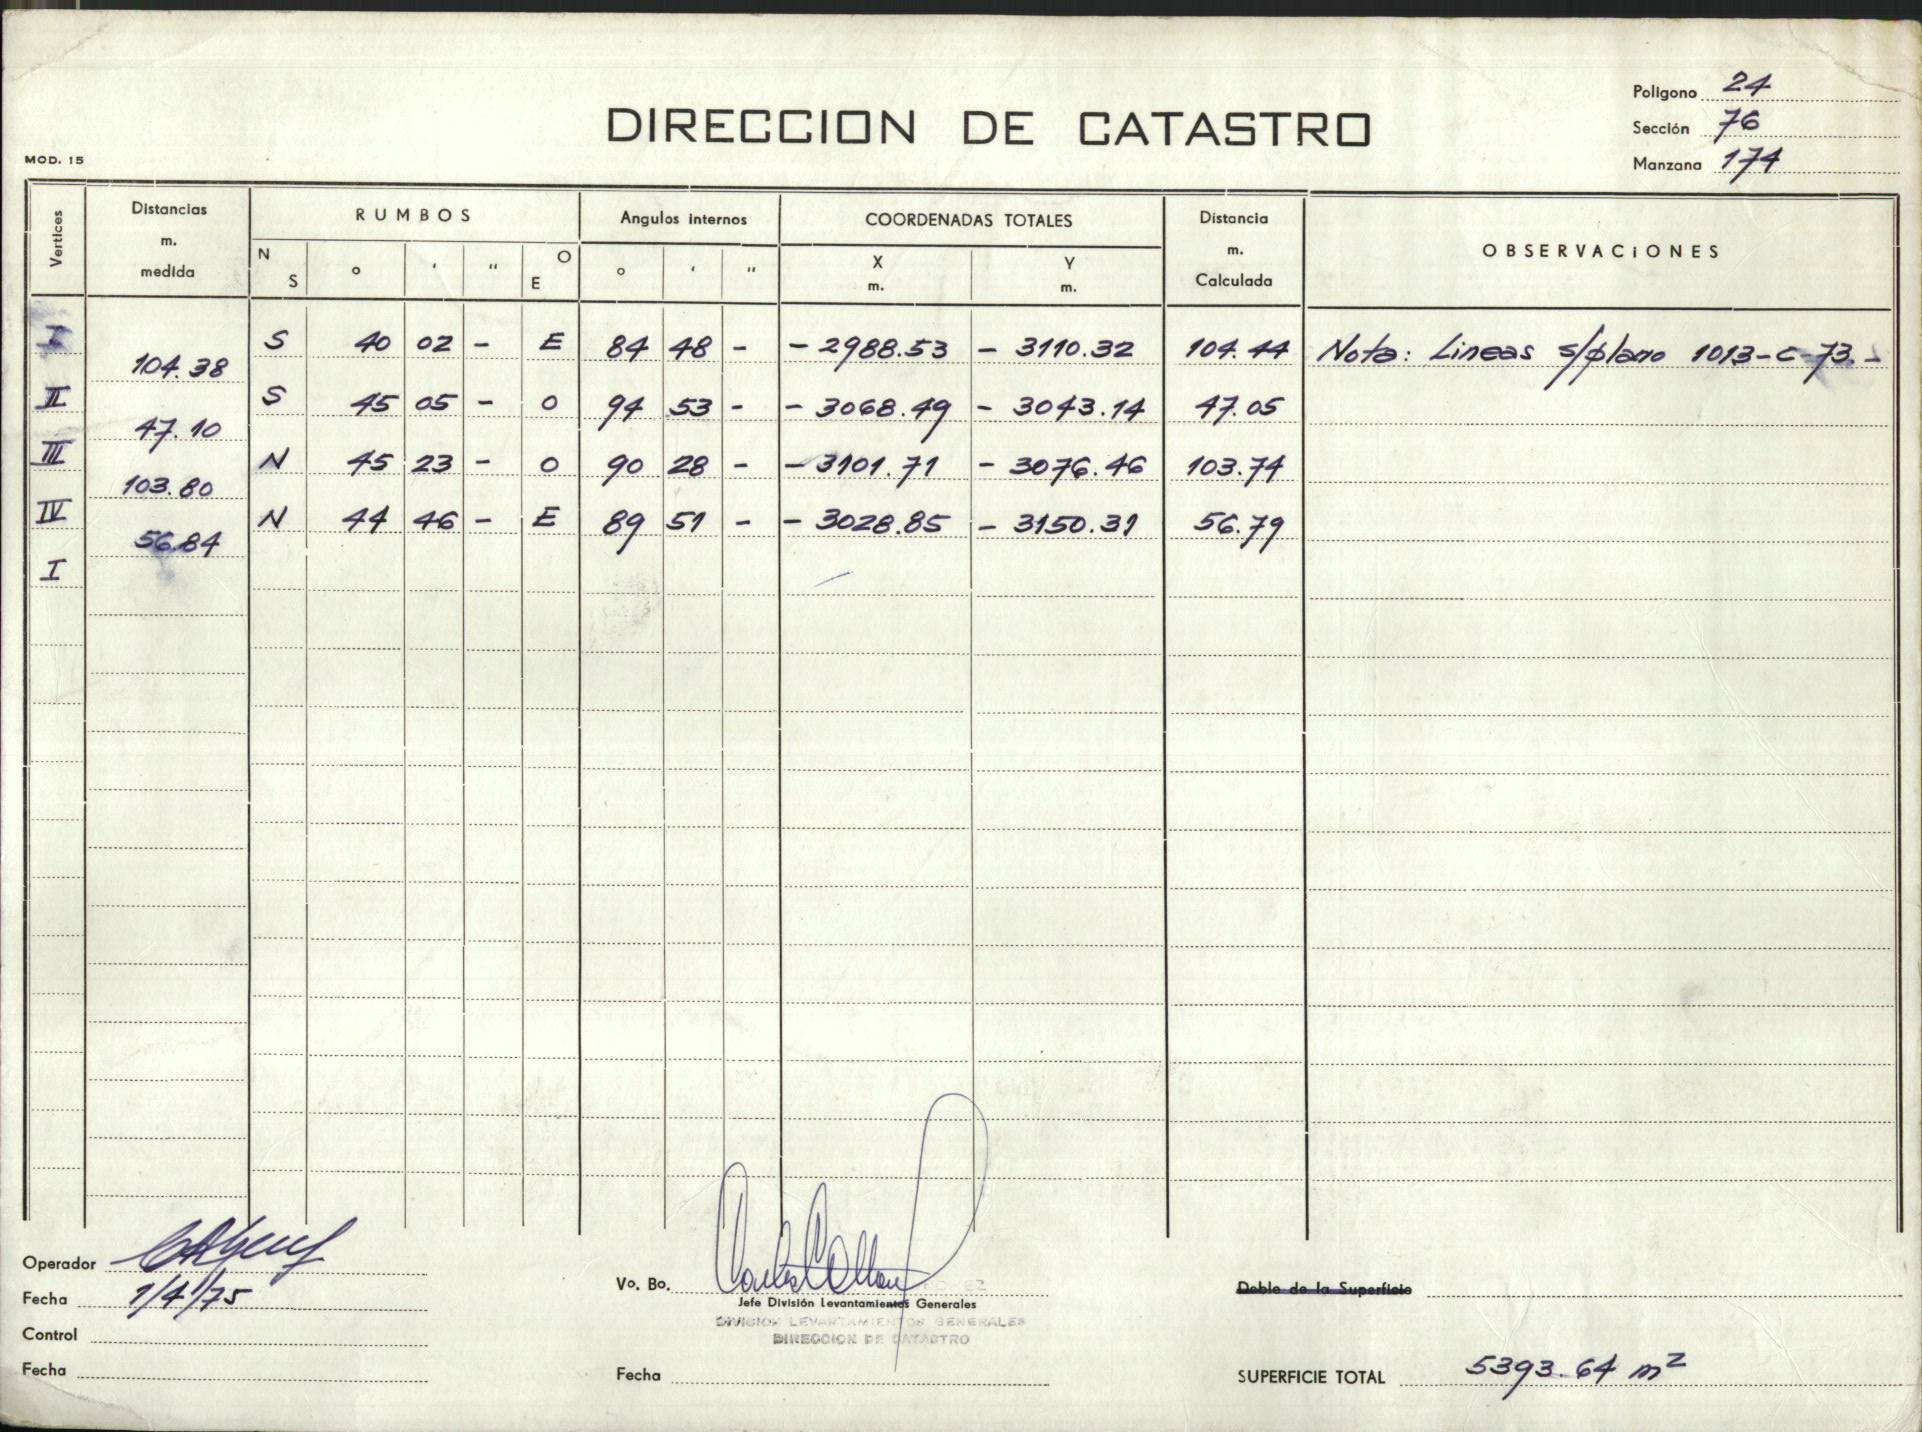 Poligono 24
DIRECCION DE CATASTRO
Sección 76
MOD. 15
Manzana 174
Vertices
Distancias m. medida
RUMBOS
Angulos internos
COORDENADAS TOTALES
Distancia m. Calculada
OBSERVACIONES
N S ° ' " O E
° ' "
X m.
Y m.
I S 40 02 - E 84 48 - - 2988.53 - 3110.32 104.44 Nota: Lineas s/plano 1013-C-73.-
104.38
II S 45 05 - O 94 53 - - 3068.49 - 3043.14 47.05
47.10
III N 45 23 - O 90 28 - - 3101.71 - 3076.46 103.74
103.80
IV N 44 46 - E 89 51 - - 3028.85 - 3150.31 56.79
56.84
I
Operador
Fecha 1/4/75
Control
Fecha
Vo. Bo.
Jefe División Levantamientos Generales
DIVISION LEVANTAMIENTOS GENERALES
DIRECCION DE CATASTRO
Fecha
Doble de la Superficie
SUPERFICIE TOTAL 5393.64 m²